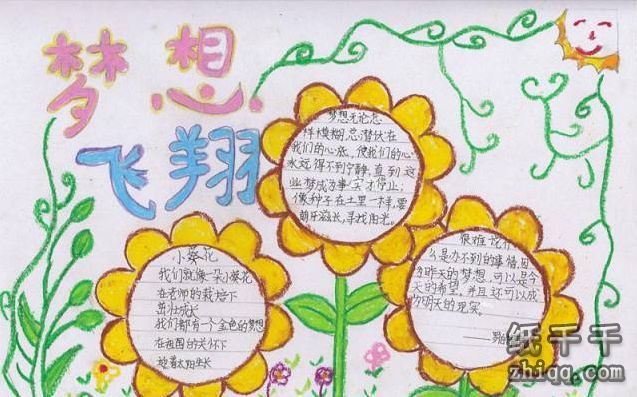 梦想
飞翔
梦想无论怎
样模糊,总潜伏在
我们的心底,使我们的心
永远得不到宁静,直到这
些梦成为事实才停止;
像种子在土里一样,要
萌牙滋长,寻找阳光。
很难说什
么是办不到的事情,因
为昨天的梦想,可以是今
天的希望,并且还可以成
为明天的现实。
小葵花
我们就像一朵小葵花
在老师的栽培下
茁壮成长
我们都有一个金色的梦想
在祖国的关怀下
迎着太阳生长
纸千千
zhiqq.com